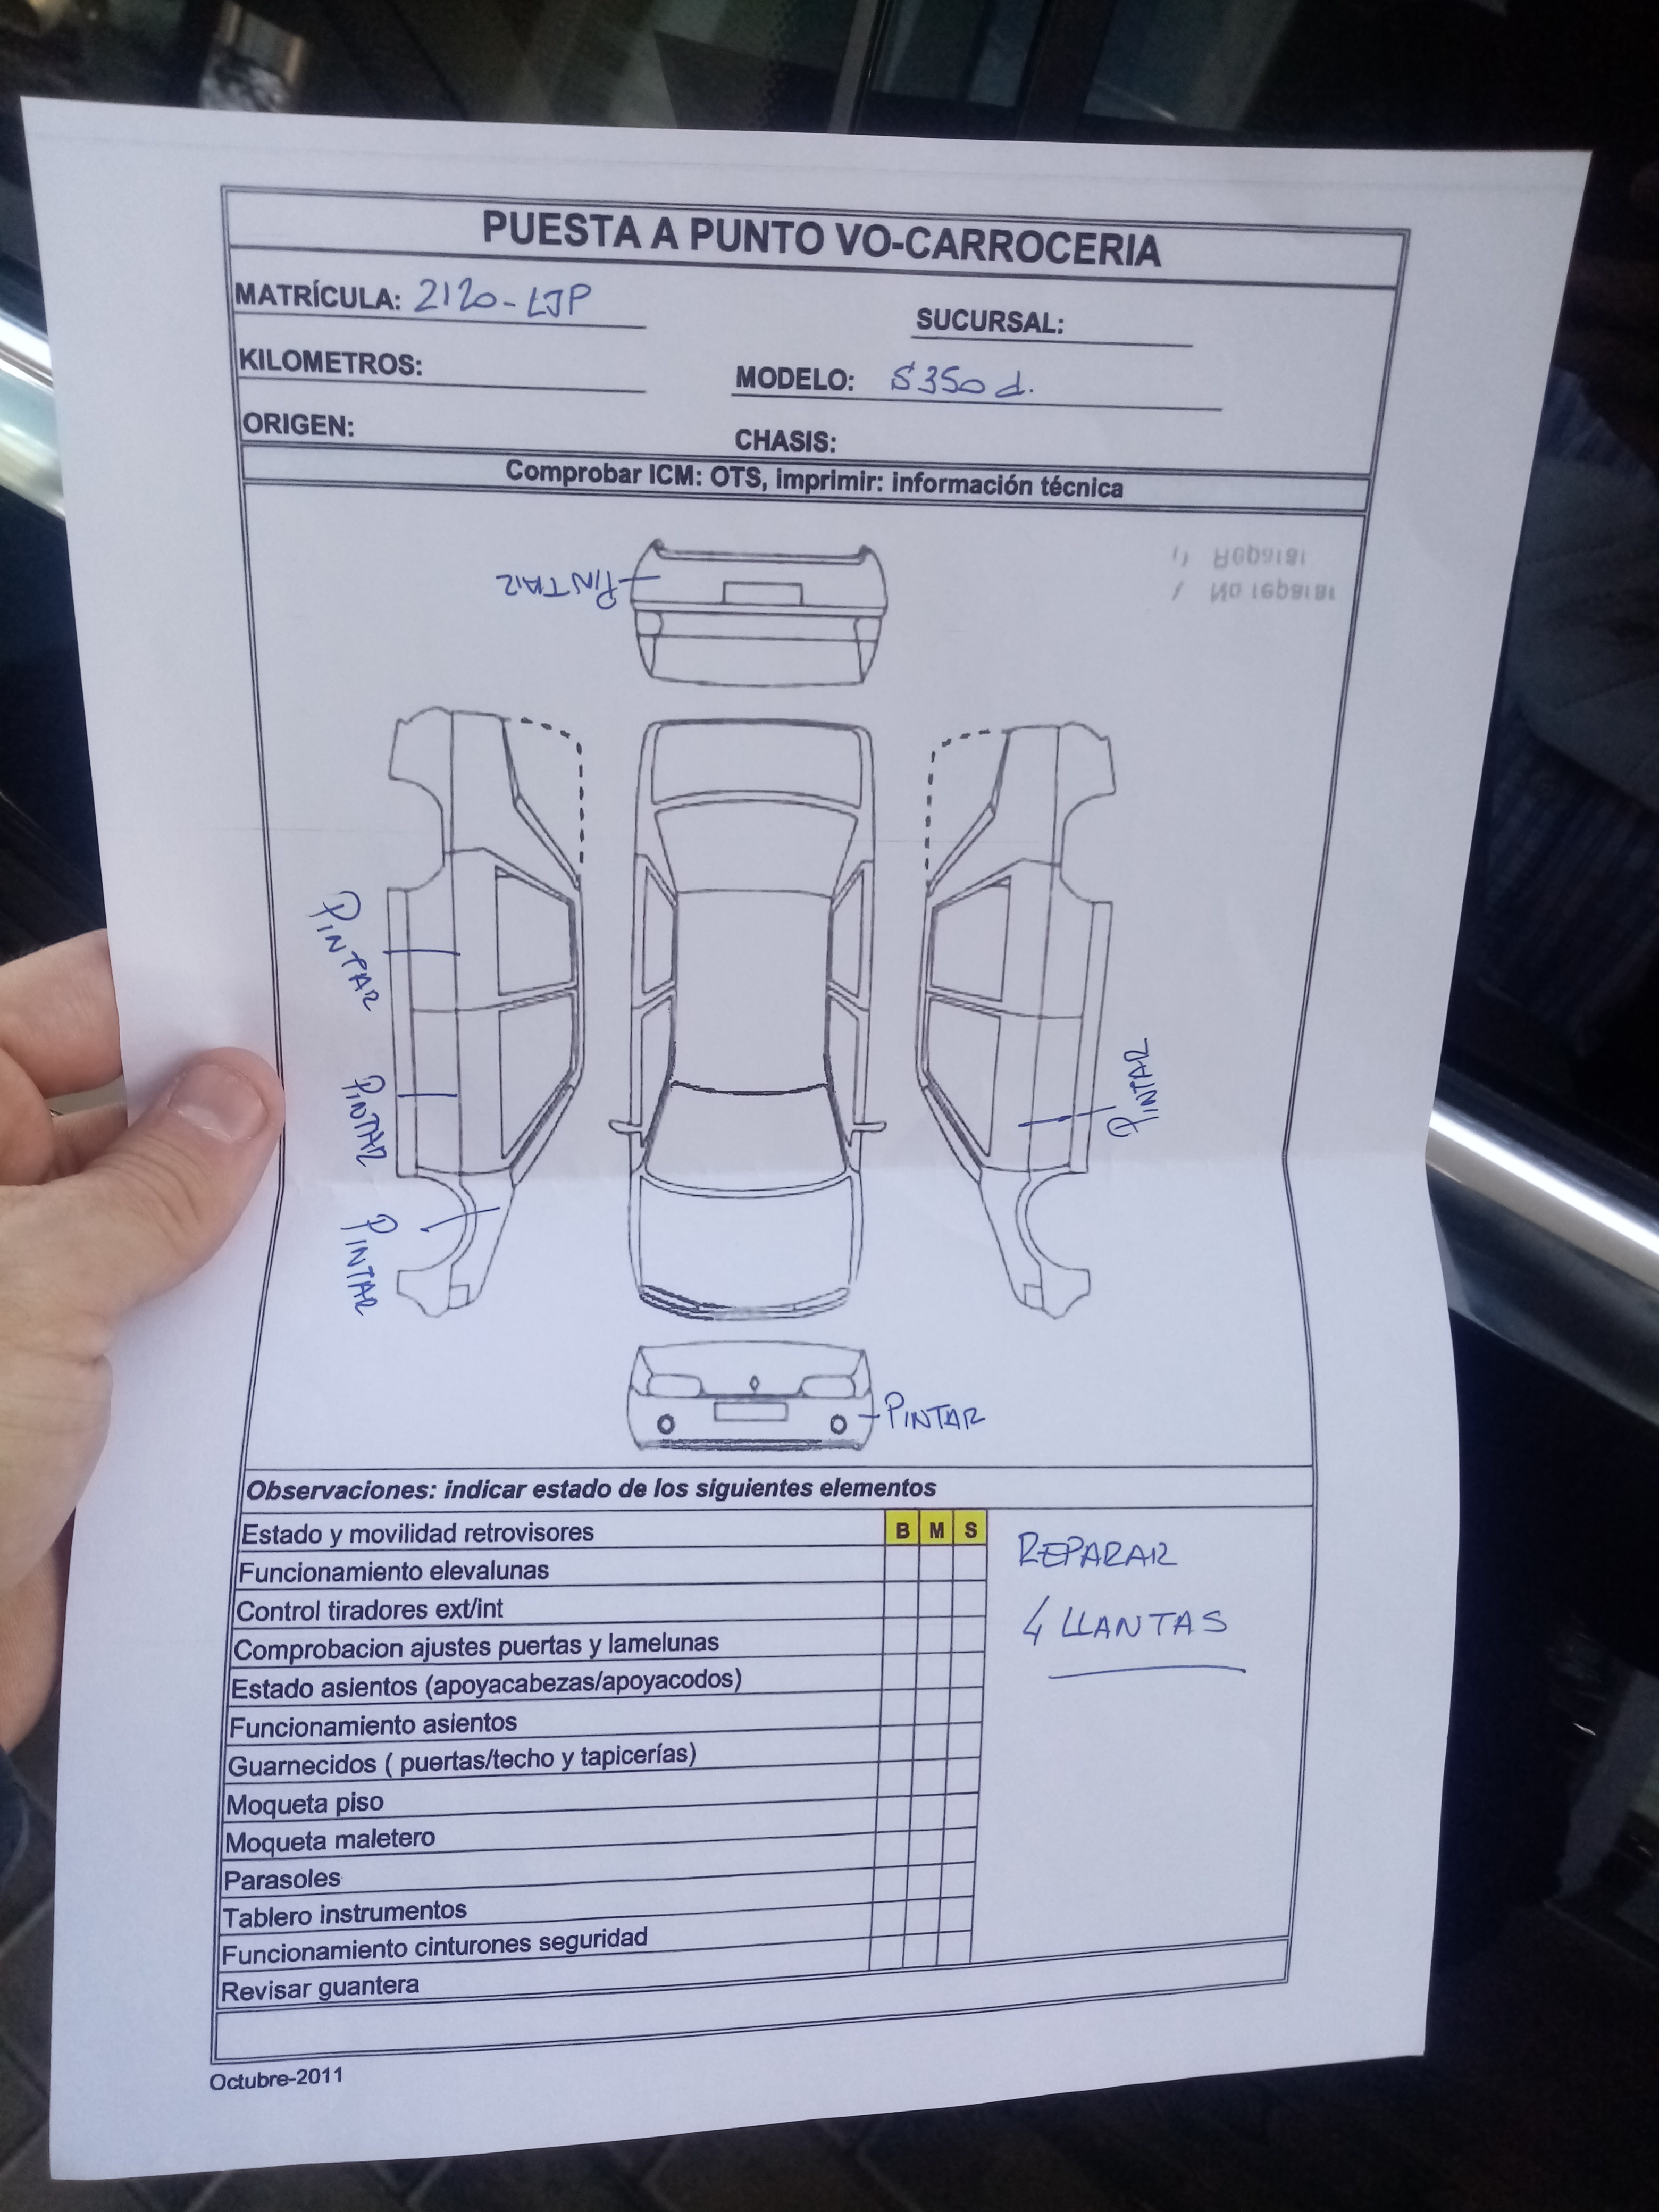 PUESTA A PUNTO VO-CARROCERIA
MATRÍCULA: 2120-LJP
SUCURSAL:
KILOMETROS:
MODELO: S350 d.
ORIGEN:
CHASIS:
Comprobar ICM: OTS, imprimir: información técnica
() Reparar
/ No reparar
PINTAR
PINTAR
PINTAR
PINTAR
PINTAR
PINTAR
Observaciones: indicar estado de los siguientes elementos
Estado y movilidad retrovisores B M S
Funcionamiento elevalunas
Control tiradores ext/int
Comprobacion ajustes puertas y lamelunas
Estado asientos (apoyacabezas/apoyacodos)
Funcionamiento asientos
Guarnecidos ( puertas/techo y tapicerías)
Moqueta piso
Moqueta maletero
Parasoles
Tablero instrumentos
Funcionamiento cinturones seguridad
Revisar guantera
REPARAR
4 LLANTAS
Octubre-2011